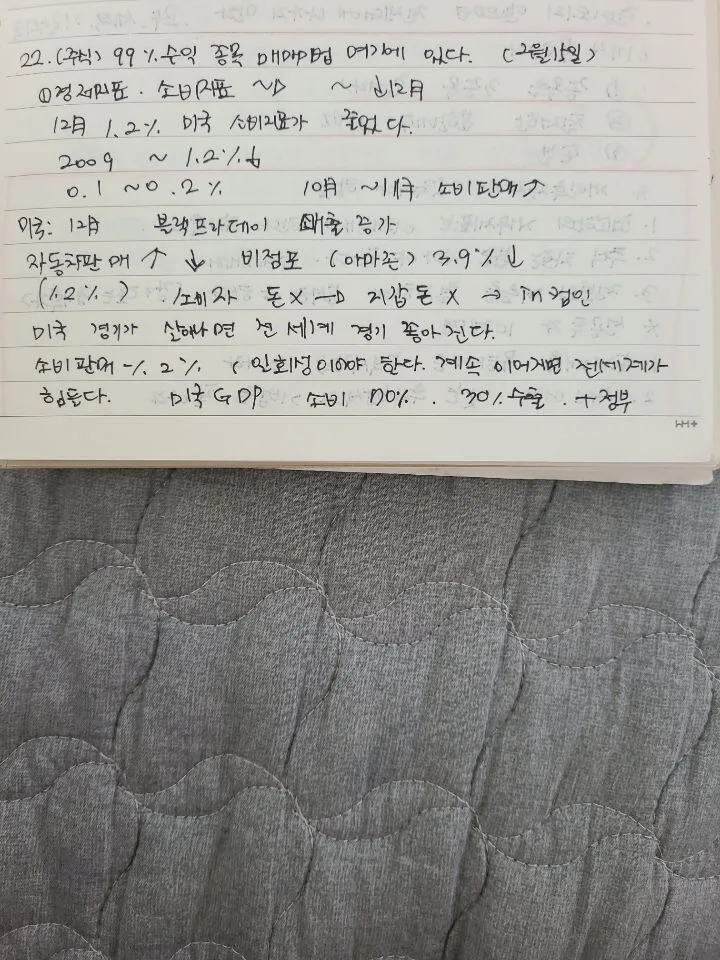 22. (주식) 99% 수익 종목 매매법 여기에 있다. (2월 15일)
① 경제지표. 소비지표 ~> ~ ↓12月
12月 1.2% 미국 소비지표가 줄었다.
2009 ~ 1.2%↓
0.1 ~0.2% 10月 ~11月 소비판매↑
미국: 12月 블랙프라데이 매출 증가
자동차판매 ↑ ↓ 비점포 (아마존) 3.9%↓
(1.2%) 소비자 돈X → 지갑 돈X →
미국 경기가 살아나면 전세계 경기 좋아진다.
소비판매 -1.2% (일회성이어야 한다. 계속 이어지면 전세계가
힘들다. 미국 GDP 소비 70%. 30% 수출. + 정부